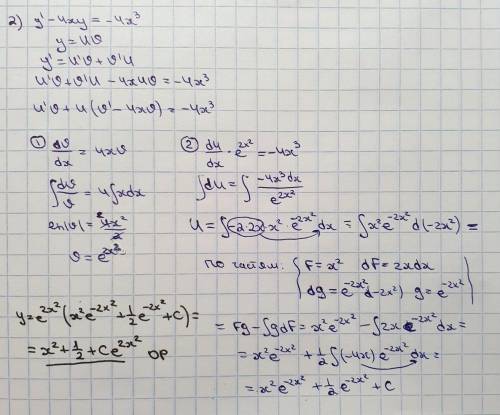 2) y' - 4xy = -4x³
y = uϑ
y' = u'ϑ + ϑ'u
u'ϑ + ϑ'u - 4xuϑ = -4x³
u'ϑ + u(ϑ' - 4xϑ) = -4x³
① dϑ/dx = 4xϑ
∫dϑ/ϑ = 4∫xdx
ln|ϑ| = ²4x²/2
ϑ = e^{2x²}
② du/dx · e^{2x²} = -4x³
∫du = ∫ -4x³dx/e^{2x²}
u = ∫-2·2x·x²·e^{-2x²}dx = ∫x²e^{-2x²}d(-2x²) =
по частям: { F = x² dF = 2xdx
dg = e^{-2x²}d(-2x²) g = e^{-2x²} }
= Fg - ∫gdF = x²e^{-2x²} - ∫2xe^{-2x²}dx =
= x²e^{-2x²} + 1/2∫(-4x)e^{-2x²}dx =
= x²e^{-2x²} + 1/2e^{-2x²} + C
y = e^{2x²}(x²e^{-2x²} + 1/2e^{-2x²} + C) =
= x² + 1/2 + Ce^{2x²} ОР